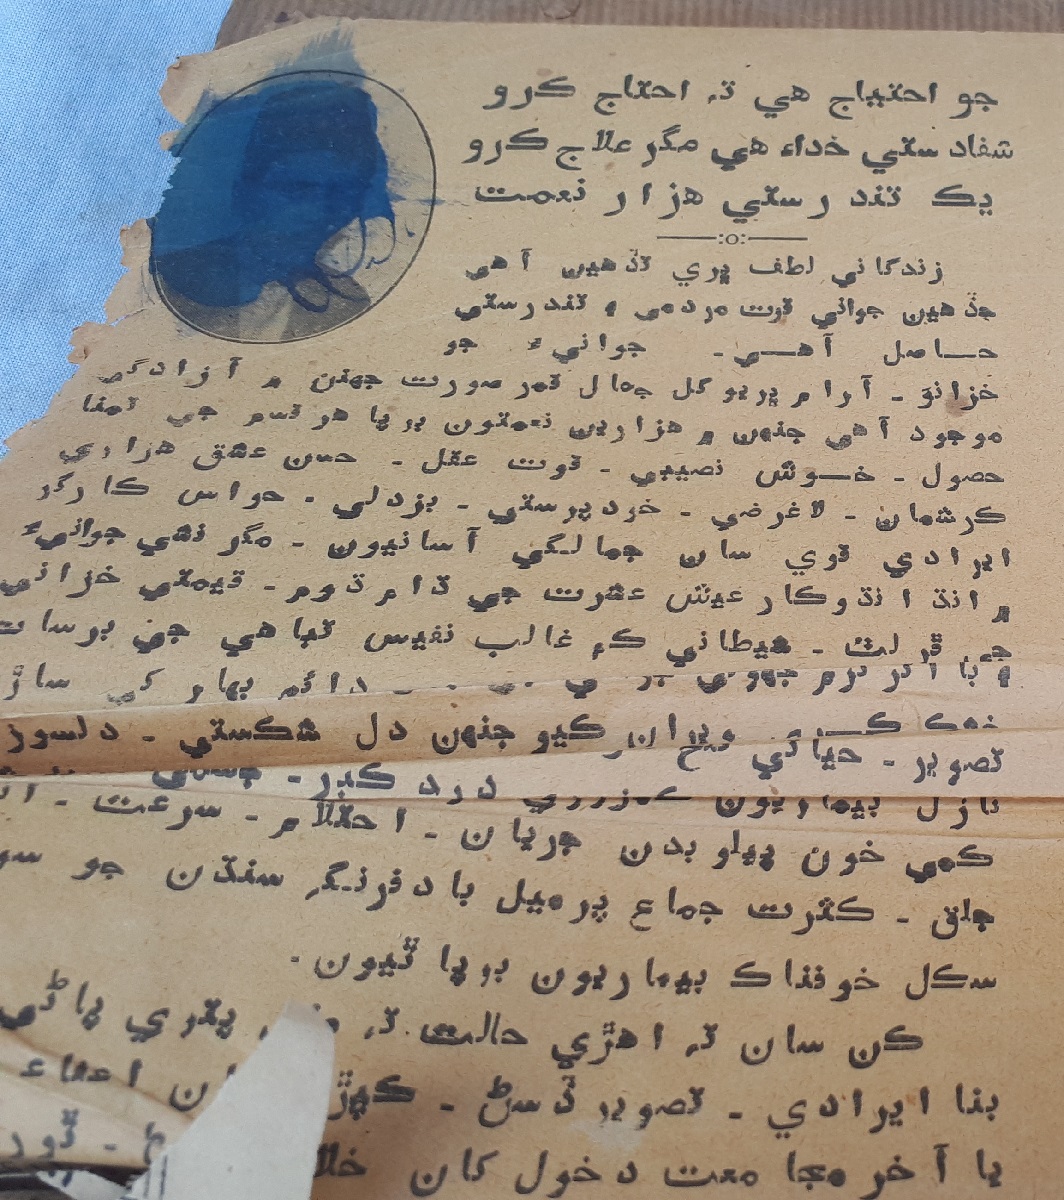 جو احتياج هي تہ احتاج ڪرو
شفاد ستي خداء هي مگر علاج ڪرو
يڪ تند رستي هزار نعمت
:o:
زندگاني لطف ڀري تڏهين آهي
جڏهين جواني قوت مردمي ۽ تندرستي
حاصل آهي۔ جوانيءَ جو
خزانو ۔ آرام ڀريو گل جمال قمر صورت جهتن ۾ آزادگي
موجود آهي جنهن ۾ هزارين نعمتون برپا هر قسم جي تمنا
حصول ۔ خوش نصيبي ۔ قوت عقل ۔ حسن عشق هزاري
ڪرشمان ۔ لاغرضي ۔ خود پرستي ۔ بزدلي ۔ حواس ڪارگر
ايرادي قوي سان جمالگي آسانيون ۔ مگر نهي جوانيءَ
۾ انڌ انڌوڪار عيش عشرت جي ڏام ڌوم ۔ قيمتي خزاني
جي ڦرلٽ ۔ شيطاني کي غالب نفيس تباهي جي برسات
دائم بهار کي ساڙ
ويران ڪيو جنهن دل شڪستي ۔ دلسوز
تصوير ۔ حياتي
درد ڪبر ۔ جسمي
نازل بيماريون
ڪمي خون پيلو بدن جريان ۔ احتلام ۔ سرعت ۔
جلق ۔ ڪثرت جماع پرميل بادفرنگہ سنڌن جو
سڪل خوفناڪ بيماريون برپا ٿيون ۔
ڪن سان تہ اهڙي حالت تہ پڌري پاڻي
بنا ايرادي ۔ تصوير ڏسڻ ۔ اعضاء
يا آخر مجامعت دخول کان